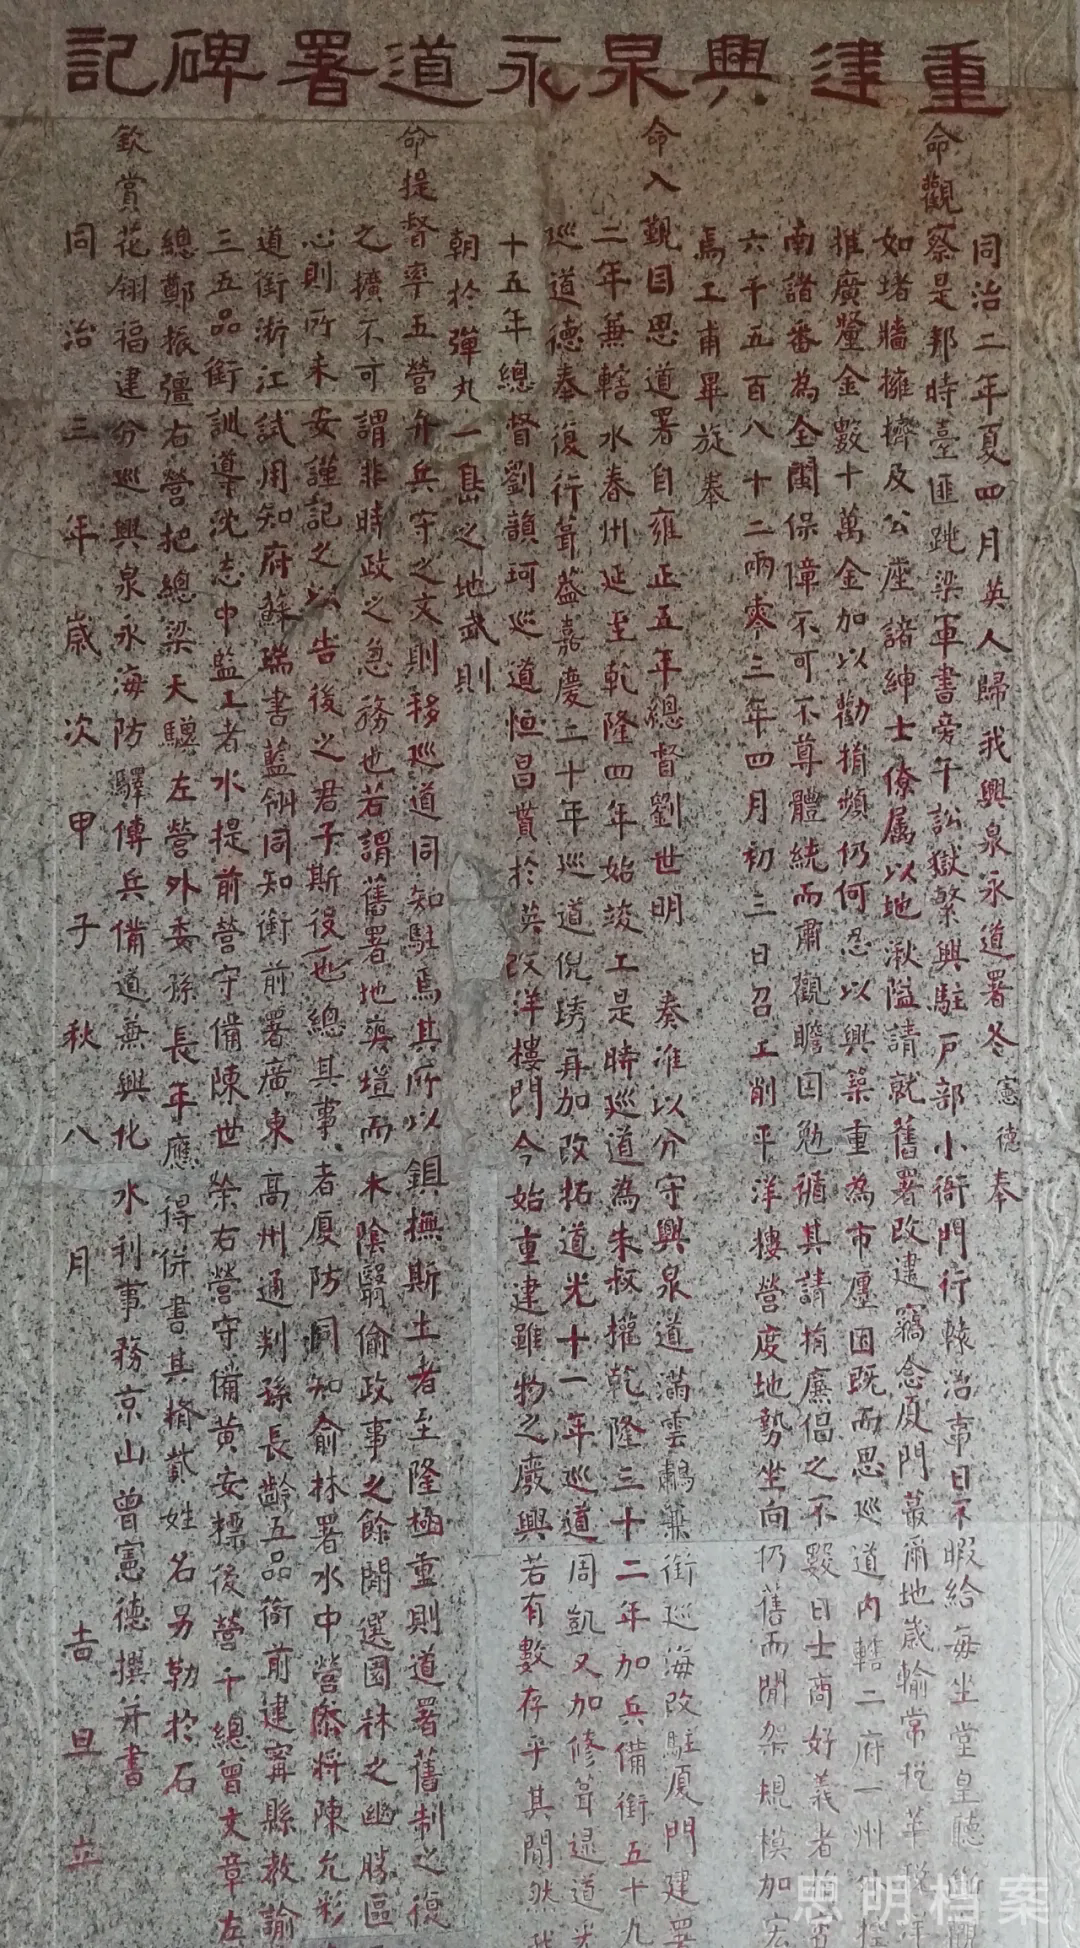 重建興泉永道署碑記
同治二年夏四月英人歸我興泉永道署冬憲德奉
命觀察是邦時臺匪跳梁軍書旁午訟獄繁興駐戶部小衙門行轅治事日不暇給每坐堂皇聽斷觀
如堵牆擁擠及公座諸紳士僚屬以地湫隘請就舊署改建竊念廈門蕞爾地歲輸常稅華稅洋
推廣釐金數十萬金加以勸捐頻仍何忍以興築重為市廛困既而思巡道內轄二府一州外控
南諸番為全閩保障不可不尊體統而肅觀瞻因勉循其請捐廉倡之不數日士商好義者
六千五百八十二兩零三年四月初三日召工削平洋樓營度地勢坐向仍舊而閒架規模加宏
焉工甫畢旋奉
命入覲因思道署自雍正五年總督劉世明 奏准以分守興泉道滿雲鷫兼銜巡海改駐廈門建署
二年兼轄永春州延至乾隆四年始竣工是時巡道為朱叔權乾隆三十二年加兵備銜五十九
巡道德奉復行葺葢嘉慶二十年巡道倪琇再加改拓道光十一年巡道周凱又加修葺逮道光
十五年總督劉韻珂巡道恒昌貰於英改洋樓門今始重建雖物之廢興若有數存乎其閒然我
朝於彈丸一島之地武則
命提督率五營弁兵守之文則移巡道同知駐焉其所以鎮撫斯土者至隆極重則道署舊制之復
之擴不可謂非時政之急務也若謂舊署地爽塏而木陰翳偷政事之餘閒選園林之幽勝區
心則所未安謹記之以告後之君子斯役也總其事者廈防同知俞林署水中營參將陳允彩
道銜浙江試用知府蘇瑞書藍翎同知銜前署廣東高州通判孫長齡五品銜前建甯縣教諭
三五品銜訓導沈志中監工者水提前營守備陳世榮右營守備黃安標後營千總曾文章左
總鄭振彊右營把總梁天驄左營外委孫長年應得併書其捐貲姓名另勒於石
欽賞花翎福建分巡興泉永海防驛傳兵備道兼興化水利事務京山曾憲德撰并書
同治三年歲次甲子秋八月吉旦立
思明档案